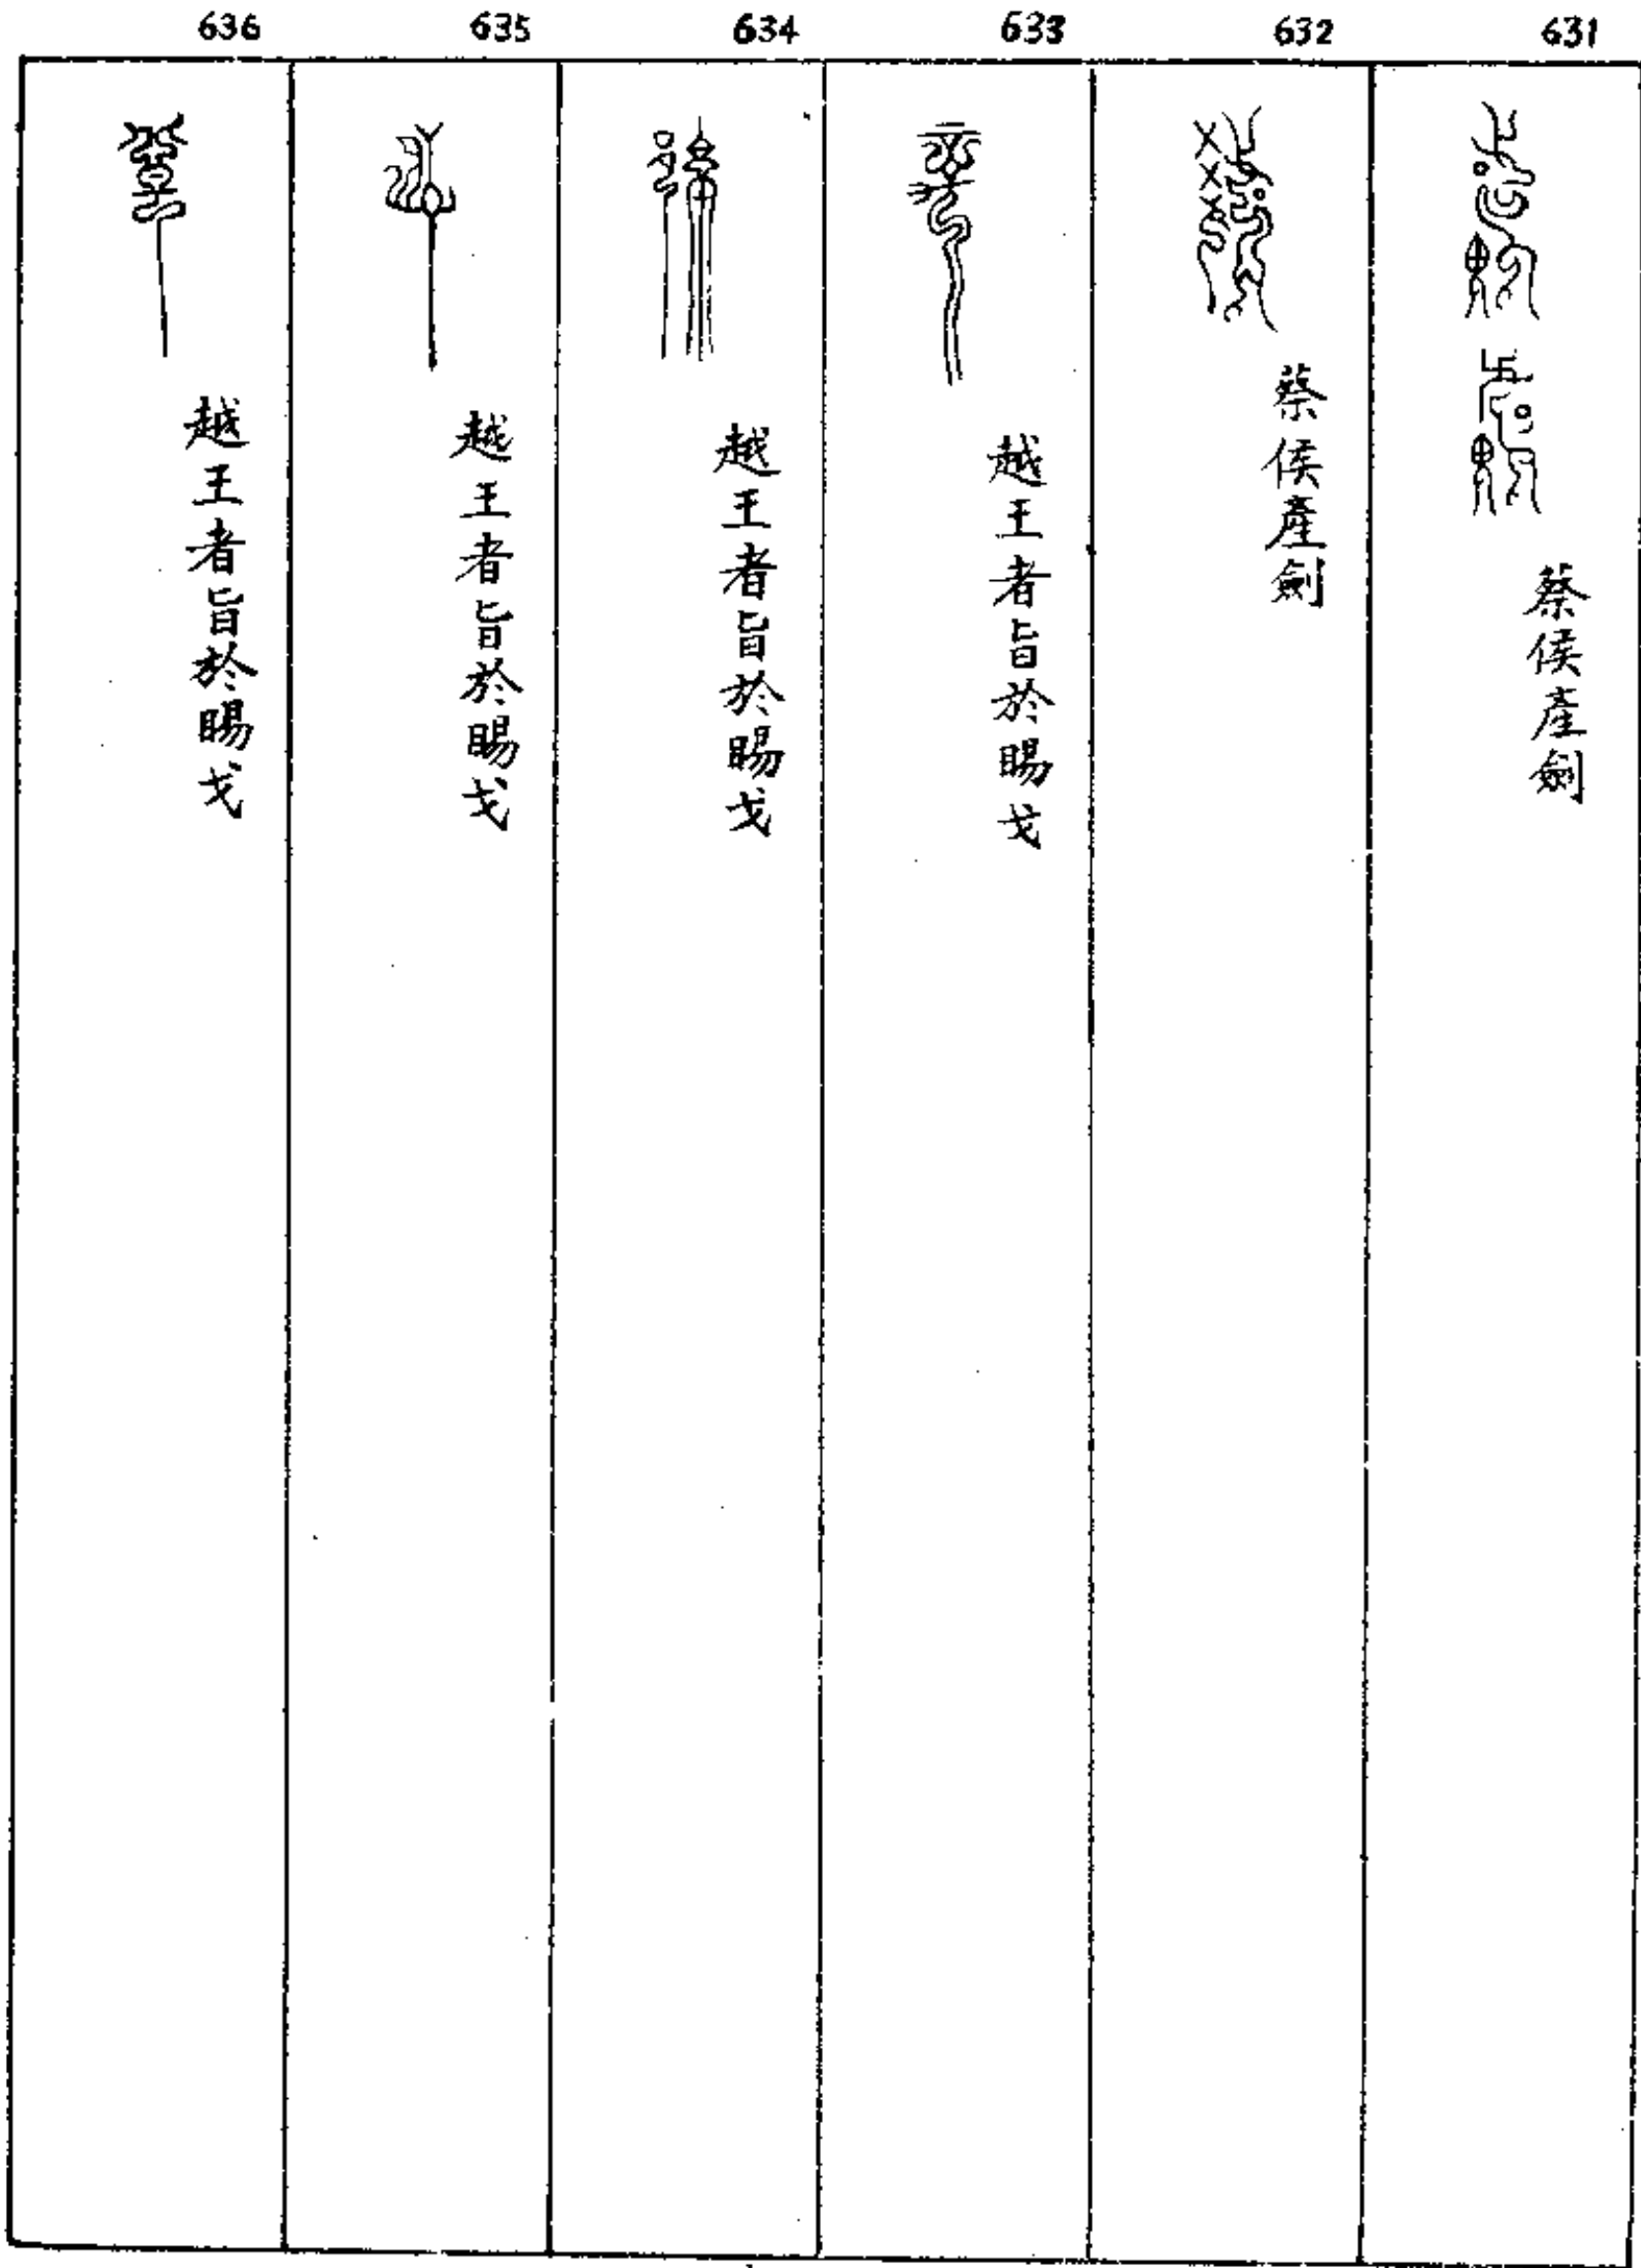 631
蔡侯產劍
632
蔡侯產劍
633
越王者旨於賜戈
634
越王者旨於賜戈
635
越王者旨於賜戈
636
越王者旨於賜戈